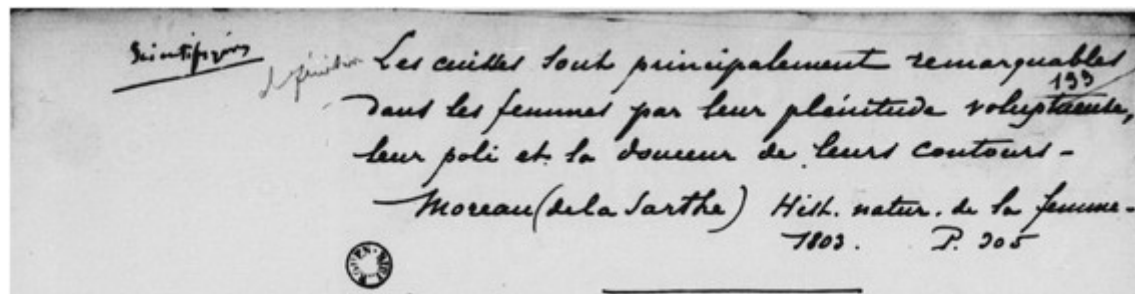 Scientifiques
définition
Les cuisses sont principalement remarquables
199
dans les femmes par leur plénitude voluptueuse,
leur poli et la douceur de leurs contours -
Moreau (de la Sarthe) Hist. natur. de la femme -
1803. P. 305